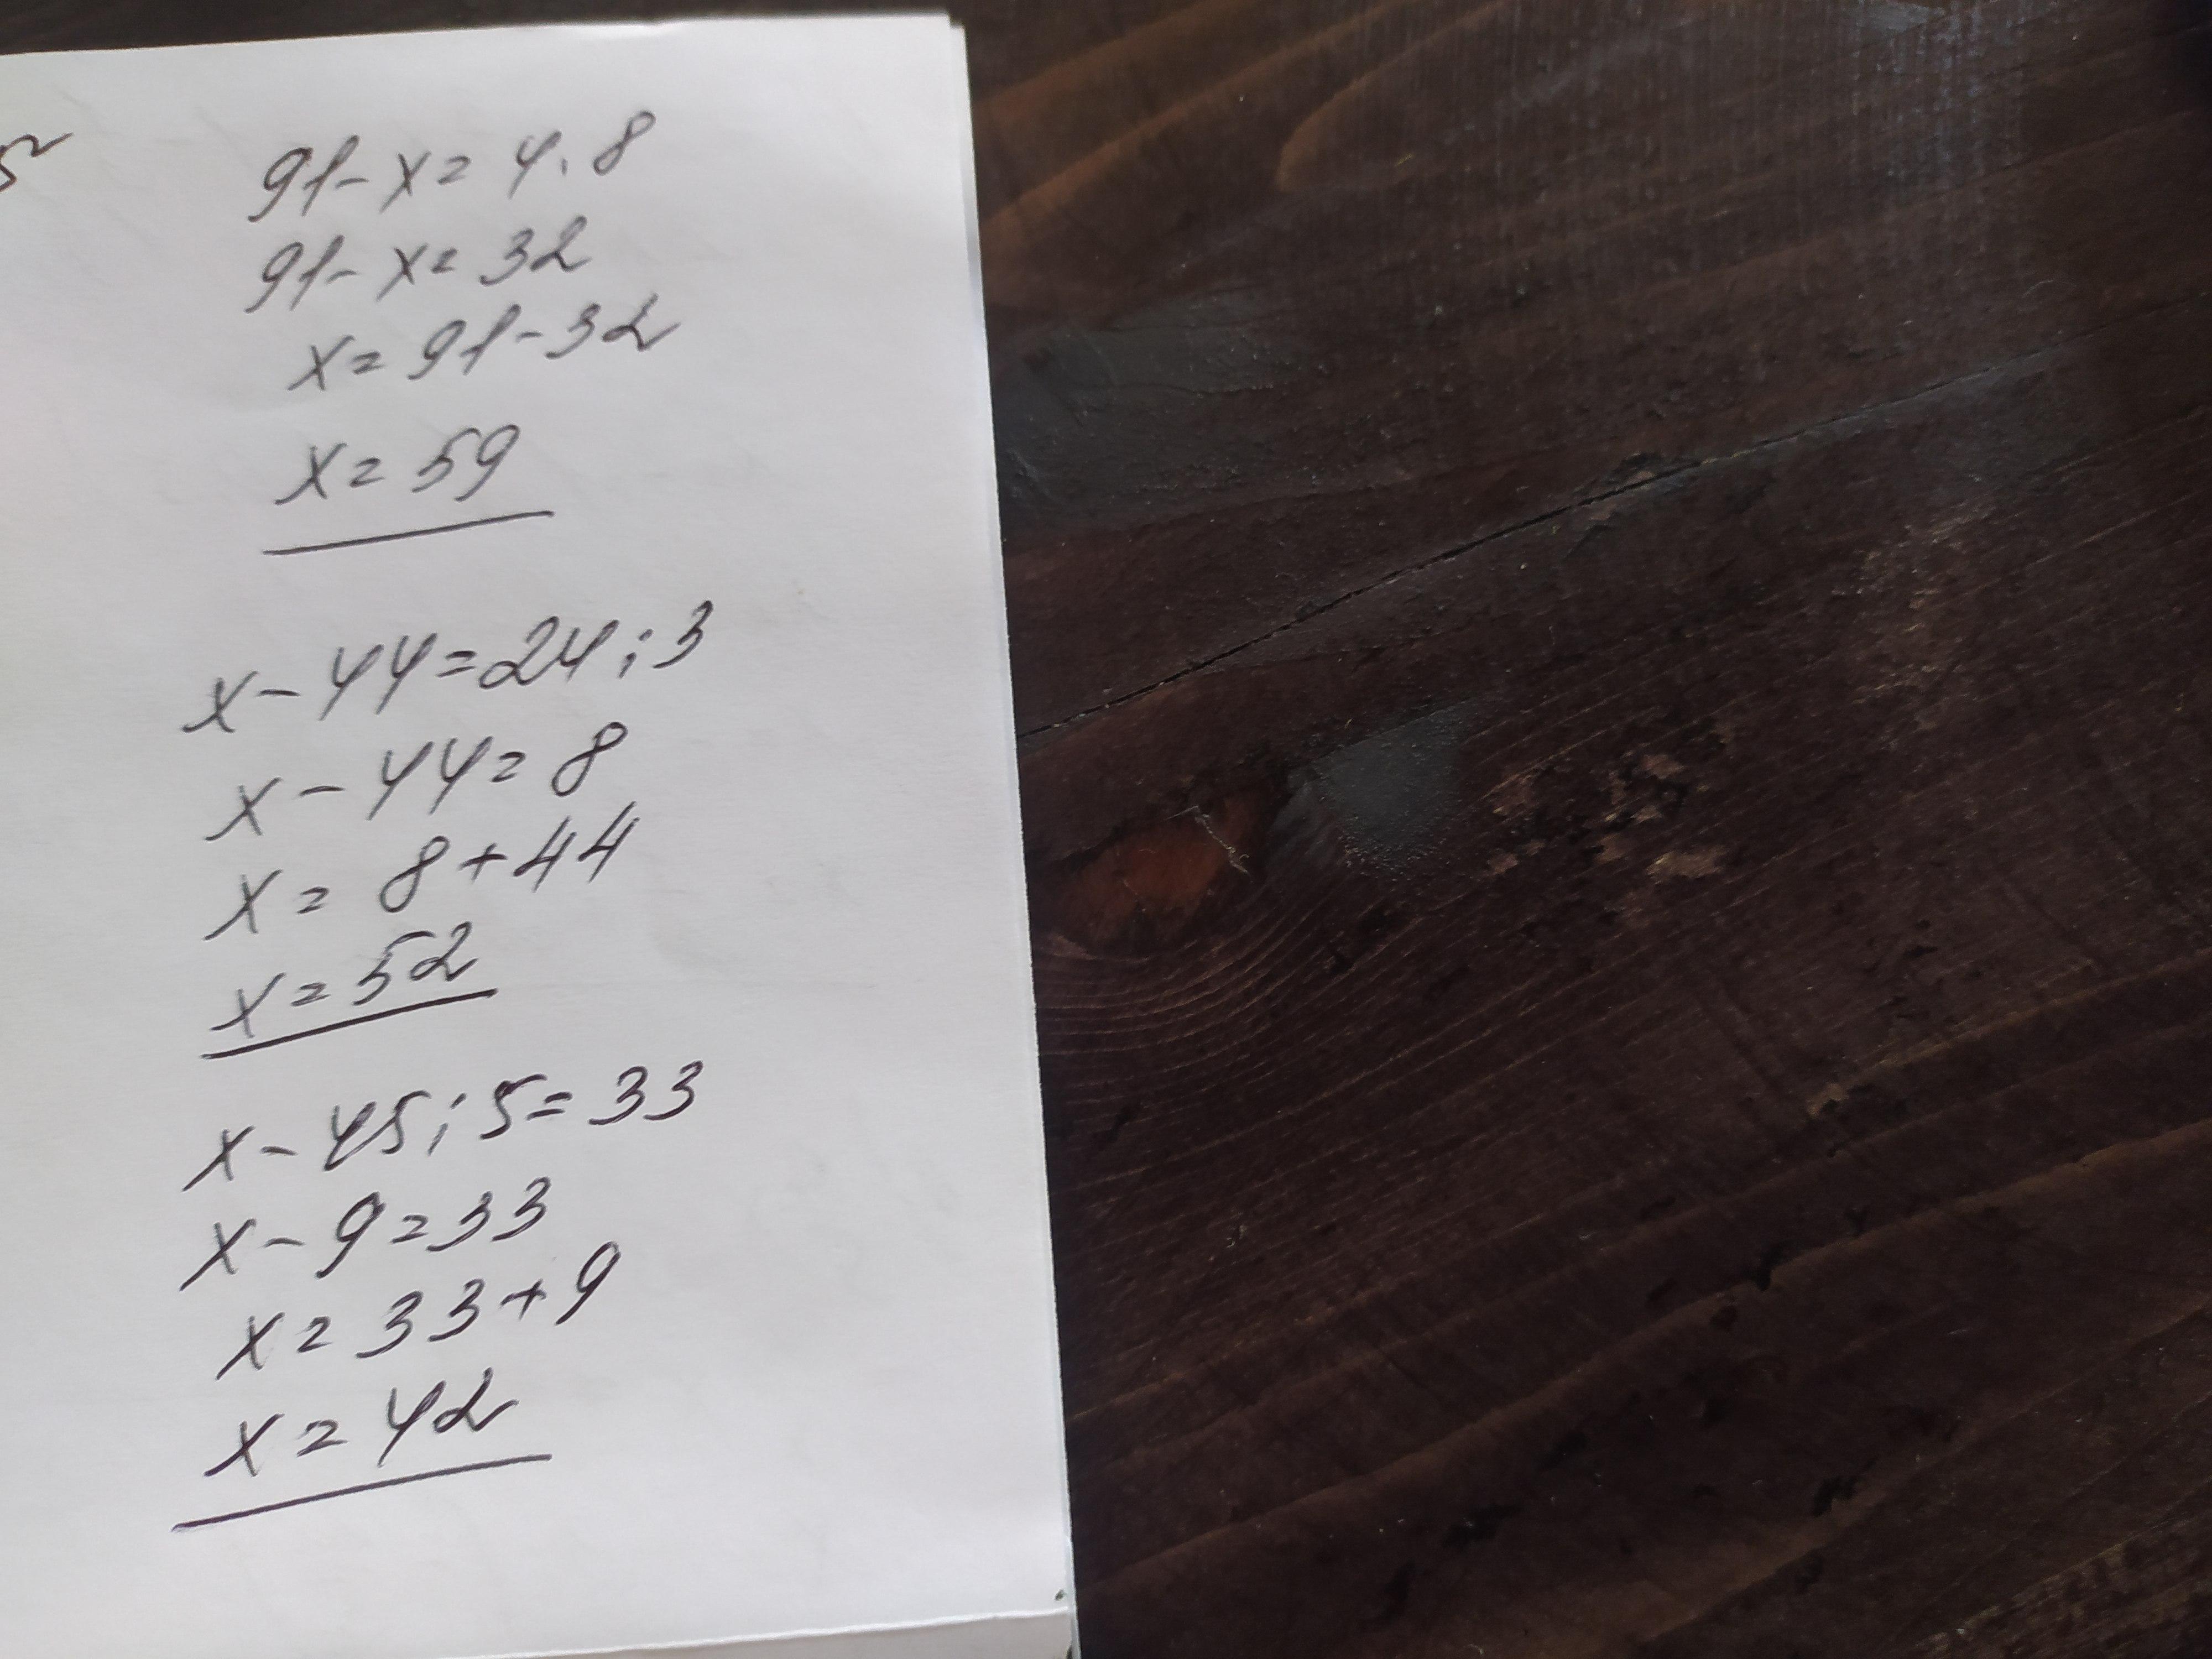 5
91-x=4.8
91-x=32
x=91-32
x=59
x-44=24:3
x-44=8
x=8+44
x=52
x-45:5=33
x-9=33
x=33+9
x=42